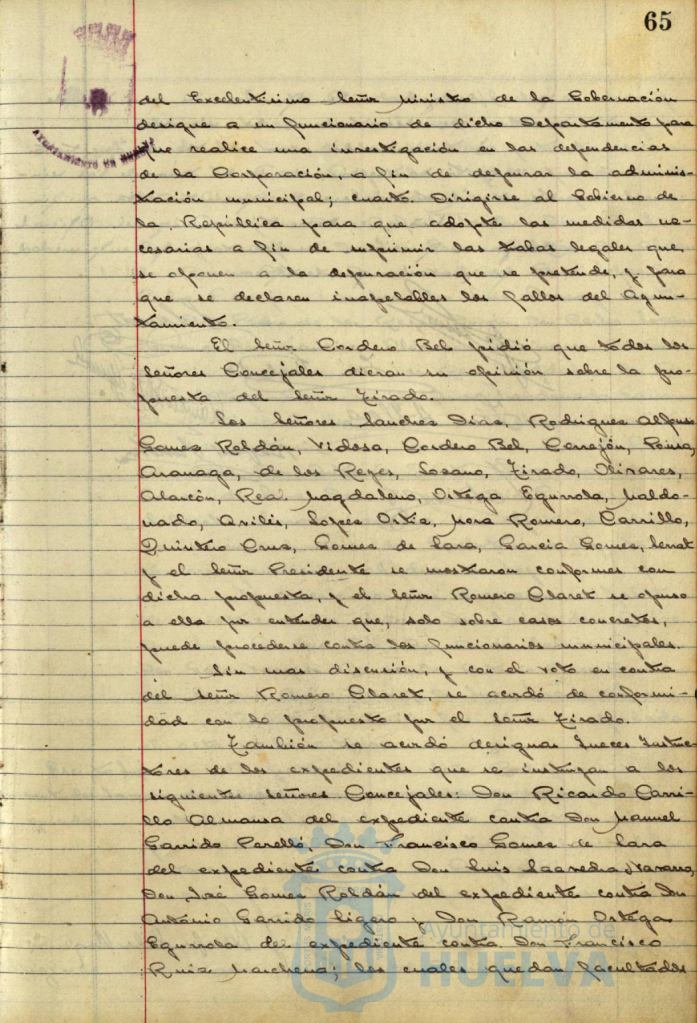 65
AYUNTAMIENTO DE HUELVA
del Excelentisimo Señor Ministro de la Gobernación
designe a un funcionario de dicho Departamento para
que realice una investigación en las dependencias
de la Corporación, a fin de depurar la adminis-
tración municipal; cuarto. Dirigirse al Gobierno de
la República para que adopte las medidas ne-
cesarias a fin de suprimir las trabas legales que
se oponen a la depuración que se pretende, y para
que se declaren inapelables los fallos del Ayun-
tamiento.
El Señor Cordero Bel pidió que todos los
Señores Concejales dieran su opinión sobre la pro-
puesta del Señor Tirado.
Los Señores Sanchez Diaz, Rodriguez Alfonso
Gomez Roldán, Vidosa, Cordero Bel, Cerrejón, Ponsa,
Aranaga, de los Reyes, Lozano, Tirado, Olivares,
Alarcón, Rea, Magdaleno, Ortega Egurrola, Maldo-
nado, Avilés, Lopez Ortiz, Mora Romero, Carrillo,
Quintero Cruz, Gomez de Lara, Garcia Gomez, Serrat
y el Señor Presidente se mostraron conformes con
dicha propuesta, y el Señor Romero Claret se opuso
a ella por entender que, solo sobre casos concretos,
puede procederse contra los funcionarios municipales.
Sin mas discusión, y con el voto en contra
del Señor Romero Claret, se acordó de conformi-
dad con lo propuesto por el Señor Tirado.
También se acordó designar Jueces Instruc-
tores de los expedientes que se instruyan a los
siguientes señores Concejales: Don Ricardo Carri-
llo Almansa del expediente contra Don Manuel
Garrido Perelló, Don Francisco Gomez de Lara
del expediente contra Don Luis Saavedra Navarro,
Don José Gomez Roldán del expediente contra Don
Antonio Garrido Ligero y Don Ramón Ortega
Egurrola del expediente contra Don Francisco
Ruiz Marchena; los cuales quedan facultados
Ayuntamiento de
HUELVA